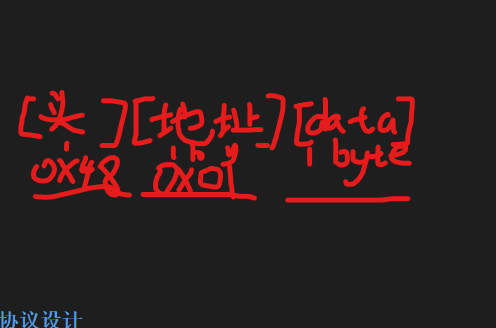 [头][地址][data]
0x48 0x01 1 byte
协议设计